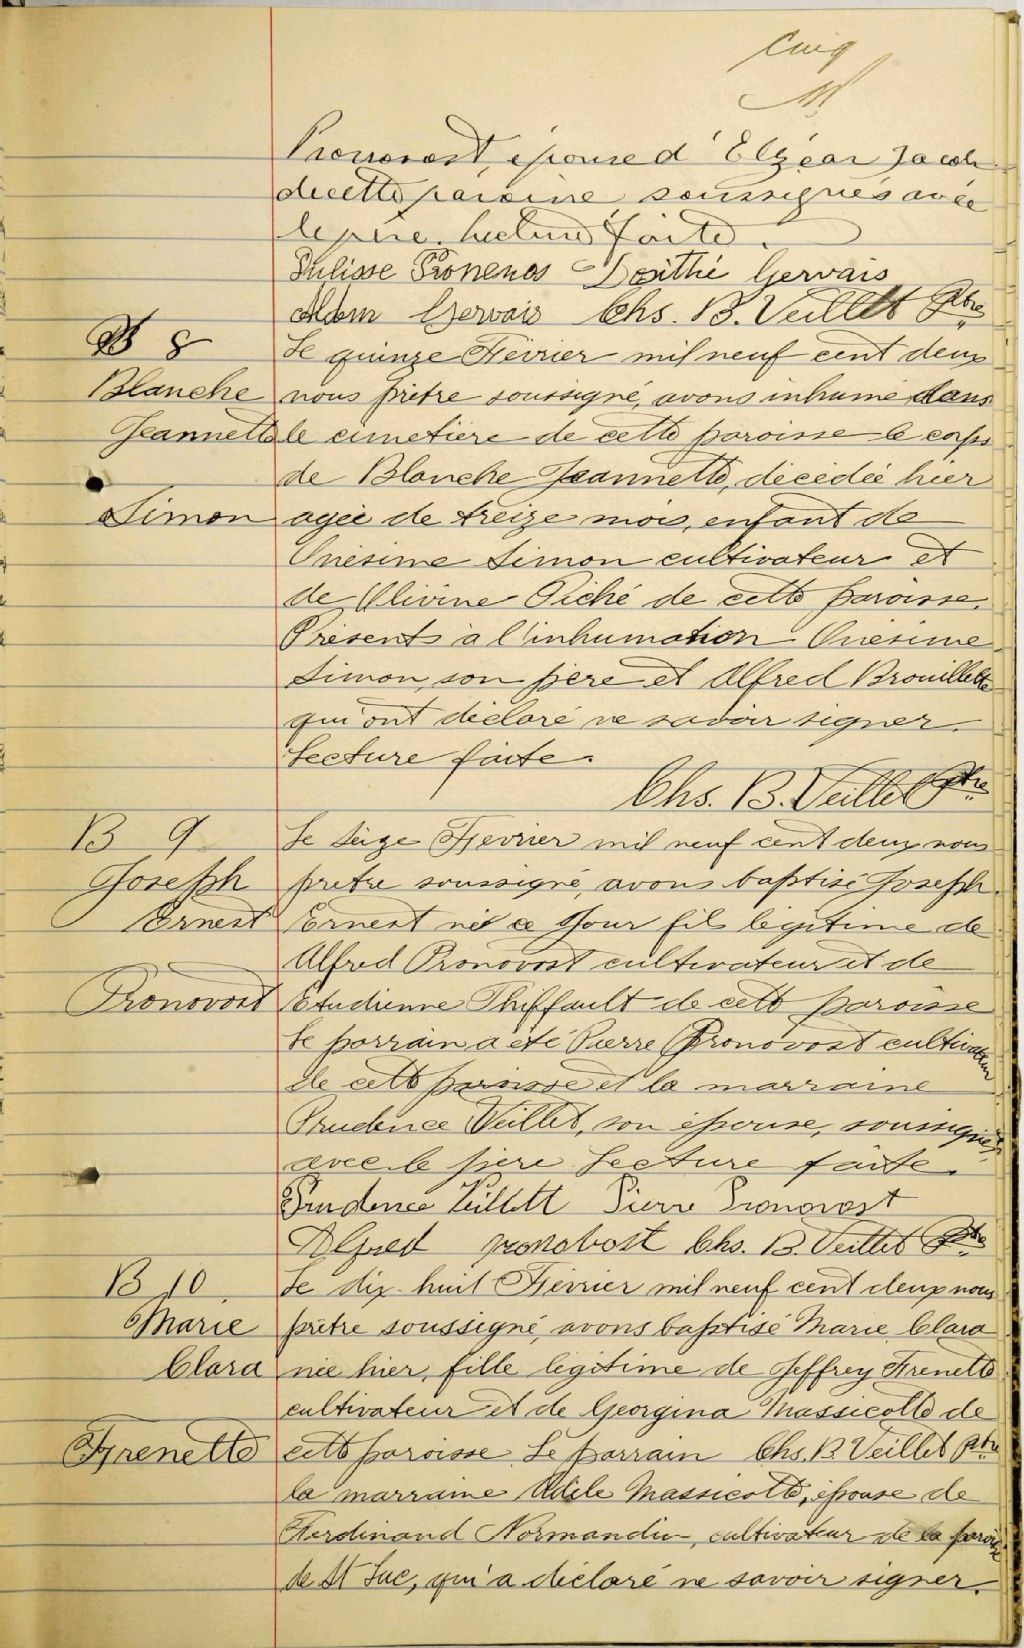 cinq
Pronovost, épouse d'Elzéar Jacob
de cette paroisse soussignés avec
le père. Lecture faite.
Ulisse Gervais
Chs. B. Veillet Ptre
8
Le quinze Février mil neuf cent deux
Blanche
nous prêtre soussigné, avons inhumé dans
Jeannette
le cimetière de cette paroisse le corps
de Blanche Jeannette, décédée hier
Simon
agée de treize mois, enfant de
Onésime Simon cultivateur et
de Olivine Piché de cette paroisse.
Présents à l'inhumation Onésime
Simon, son père et Alfred Brouillette
qui ont déclaré ne savoir signer.
Lecture faite.
Chs. B. Veillet Ptre
B 9
Le seize Février mil neuf cent deux nous
Joseph
prêtre soussigné, avons baptisé Joseph
Ernest
Ernest né ce jour fils légitime de
Alfred Pronovost cultivateur et de
Pronovost
Etudienne Thiffault de cette paroisse
Le parrain a été Pierre Pronovost cultivateur
de cette paroisse et la marraine
Prudence Veillet, son épouse, soussignés
avec le père Lecture faite.
Prudence Veillett Pierre Pronovost
Alfred pronobost Chs. B. Veillet Ptre
B 10
Le dix-huit Février mil neuf cent deux nous
Marie
prêtre soussigné, avons baptisé Marie Clara
Clara
née hier, fille légitime de Jeffrey Frenette
cultivateur et de Georgina Massicotte de
Frenette
cette paroisse Le parrain Chs. B. Veillet Ptre
la marraine Adèle Massicotte, épouse de
Ferdinand Normandin, cultivateur de la paroisse
de St Luc, qui a déclaré ne savoir signer.